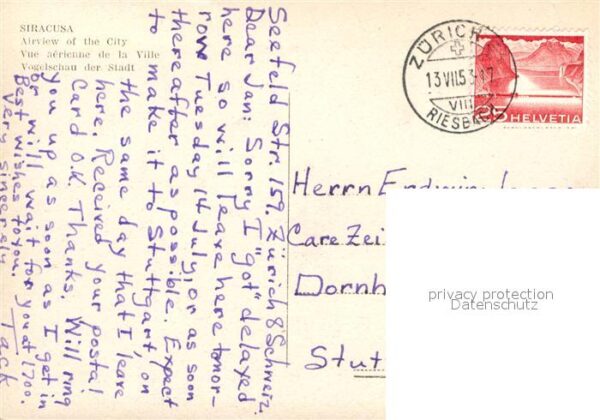 SIRACUSA
Airview of the City
Vue aérienne de la Ville
Vogelschau der Stadt
Seefeld Str. 159. Zürich 8 Schweiz.
Dear Jan: Sorry I "got" delayed
here so will leave here tomor-
row Tuesday 14 July, or as soon
thereafter as possible. Expect
to make it to Stuttgart, on
the same day that I leave
here. Received your postal
Card O.K. Thanks. Will ring
you up as soon as I get in
or will wait for you at 1700.
Best wishes to you.
Very sincerely Jack
ZÜRICH
13 VII 53
VIII
RIESBACH
25 HELVETIA
Herrn Erdwin
Care Zei
Dornh
Stutt
privacy protection
Datenschutz